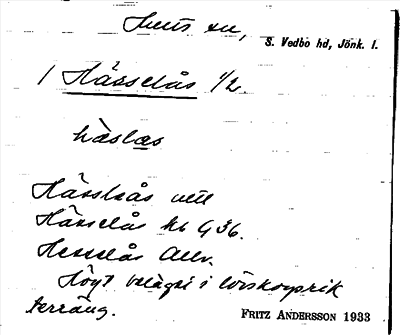 S. Vedbo hd, Jönk. l.
1 Hässelås 1/2.
hàslas
Hässleås
Hässelås kb G 36.
Hesselås
Högt beläget i lövskogsrik
terräng. FRITZ ANDERSSON 1933